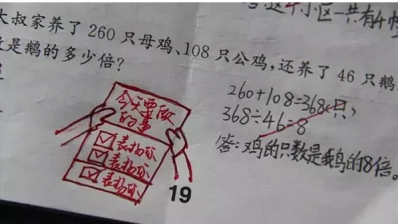 这个小区一共有4幢
大叔家养了 260 只母鸡、108 只公鸡，还养了 46 只鹅
是鹅的多少倍？
260+108=368(只)
368÷46=8
答:鸡的只数是我鸟的8倍。
今天要做
的事
表扬你
表扬你
表扬你
19